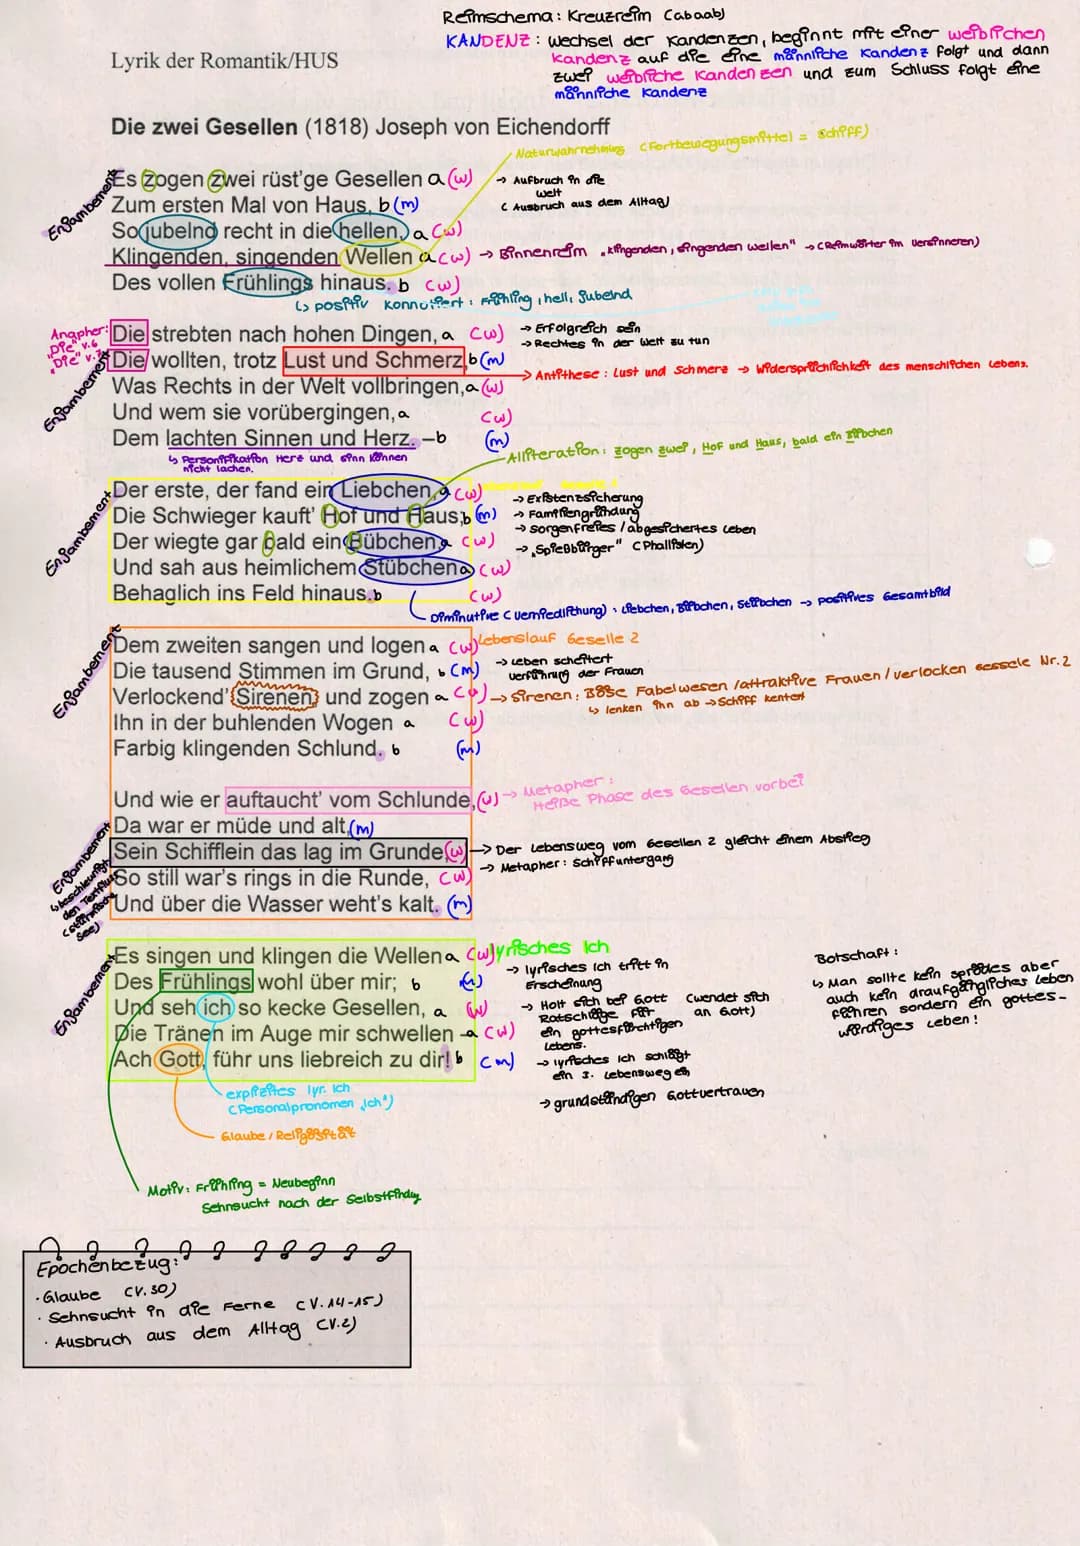 Reimschema: Kreuzreim (abaab)
KANDENZ: Wechsel der Kandenzen, beginnt mit einer weiblichen
Kandenz auf die eine männliche Kandenz folgt und dann
zwei weibliche Kandenzen und zum Schluss folgt eine
männliche Kandenz
Lyrik der Romantik/HUS
Die zwei Gesellen (1818) Joseph von Eichendorff
Naturwahrnehmung (Fortbewegungsmittel = Schiff)
Enjambement
Es zogen zwei rüst'ge Gesellen a (w)
→ Aufbruch in die
Welt
(Ausbruch aus dem Alltag)
Zum ersten Mal von Haus, b (m)
So jubelnd recht in die hellen, a (w)
Klingenden, singenden Wellen a (w) → Binnenreim „klingenden, singenden wellen" → (Reimwörter im Versinneren)
Des vollen Frühlings hinaus. b (w)
↳ positiv konnotiert: Frühling, hell, Jubelnd
Anapher:
"Die" v.6
"Die" v.7
Enjambement
Die strebten nach hohen Dingen, a (w)
→ Erfolgreich sein
→ Rechtes in der Welt zu tun
Die wollten, trotz Lust und Schmerz, b (m)
→ Antithese: Lust und Schmerz → Widersprüchlichkeit des menschlichen Lebens.
Was Rechts in der Welt vollbringen, a (w)
Und wem sie vorübergingen, a (w)
Dem lachten Sinnen und Herz. – b (m)
↳ Personifikation Herz und Sinn können
nicht lachen.
Alliteration: zogen zwei, Hof und Haus, bald ein Bübchen
Enjambement
Der erste, der fand ein Liebchen, a (w)
Die Schwieger kauft' Hof und Haus; b (m)
Der wiegte gar bald ein Bübchen, a (w)
Und sah aus heimlichem Stübchen a (w)
Behaglich ins Feld hinaus. b (w)
→ Existenzsicherung
→ Familiengründung
→ sorgenfreies / abgesichertes Leben
→ „Spießbürger" (Phallisten)
Diminutive (Verniedlichung): Liebchen, Bübchen, Stübchen → positives Gesamtbild
Enjambement
Dem zweiten sangen und logen a (w) Lebenslauf Geselle 2
Die tausend Stimmen im Grund, b (m)
→ Leben scheitert
Verführung der Frauen
Verlockend' Sirenen, und zogen a (w) → Sirenen: Böse Fabelwesen / attraktive Frauen / verlocken Gesselle Nr. 2
↳ lenken ihn ab → Schiff kentert
Ihn in der buhlenden Wogen a (w)
Farbig klingenden Schlund. b (m)
Und wie er auftaucht' vom Schlunde, (w) → Metapher:
Heiße Phase des Gesellen vorbei
Da war er müde und alt, (m)
Sein Schifflein das lag im Grunde, (w) → Der Lebensweg vom Gesellen 2 gleicht einem Abstieg
→ Metapher: Schiffuntergang
So still war's rings in die Runde, (w)
Und über die Wasser weht's kalt. (m)
Enjambement
↳ beschleunigt
den Textfluss
(stürmische
See)
Enjambement
Es singen und klingen die Wellen a (w) lyrisches Ich
Des Frühlings wohl über mir; b (m)
Und seh ich so kecke Gesellen, a (w)
Die Tränen im Auge mir schwellen – a (w)
Ach Gott, führ uns liebreich zu dir! b (m)
→ lyrisches Ich tritt in
Erscheinung
→ Holt sich bei Gott (wendet sich
Ratschläge für an Gott)
ein gottesfürchtigen
Lebens.
→ lyrisches Ich schlägt
ein 3. Lebensweg ein
→ grundständigen Gottvertrauen
Botschaft:
↳ Man sollte kein sprödes aber
auch kein draufgänglicher Leben
führen sondern ein gottes-
würdiges Leben!
explizites lyr. Ich
(Personalpronomen „Ich")
Glaube / Religösität
Motiv: Frühling = Neubeginn
Sehnsucht nach der Selbstfindung
Epochenbezug:
· Glaube (V. 30)
· Sehnsucht in die Ferne (V. 14-15)
· Ausbruch aus dem Alltag (V. 2)